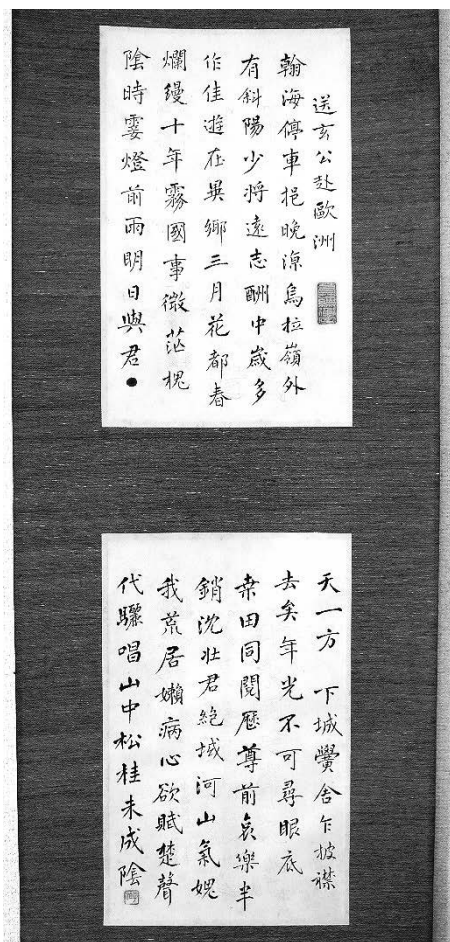 送玄公赴歐洲
翰海停車挹晚涼烏拉嶺外
有斜陽少將遠志酬中歲多
作佳遊在異鄉三月花都春
爛縵十年霧國事微茫槐
陰時霎燈前雨明日與君
天一方 下城黌舍乍披襟
去矣年光不可尋眼底
桒田同閱歷尊前哀樂半
銷沈壯君絕域河山氣媿
我荒居嬾病心欲賦楚聲
代驪唱山中松桂未成陰